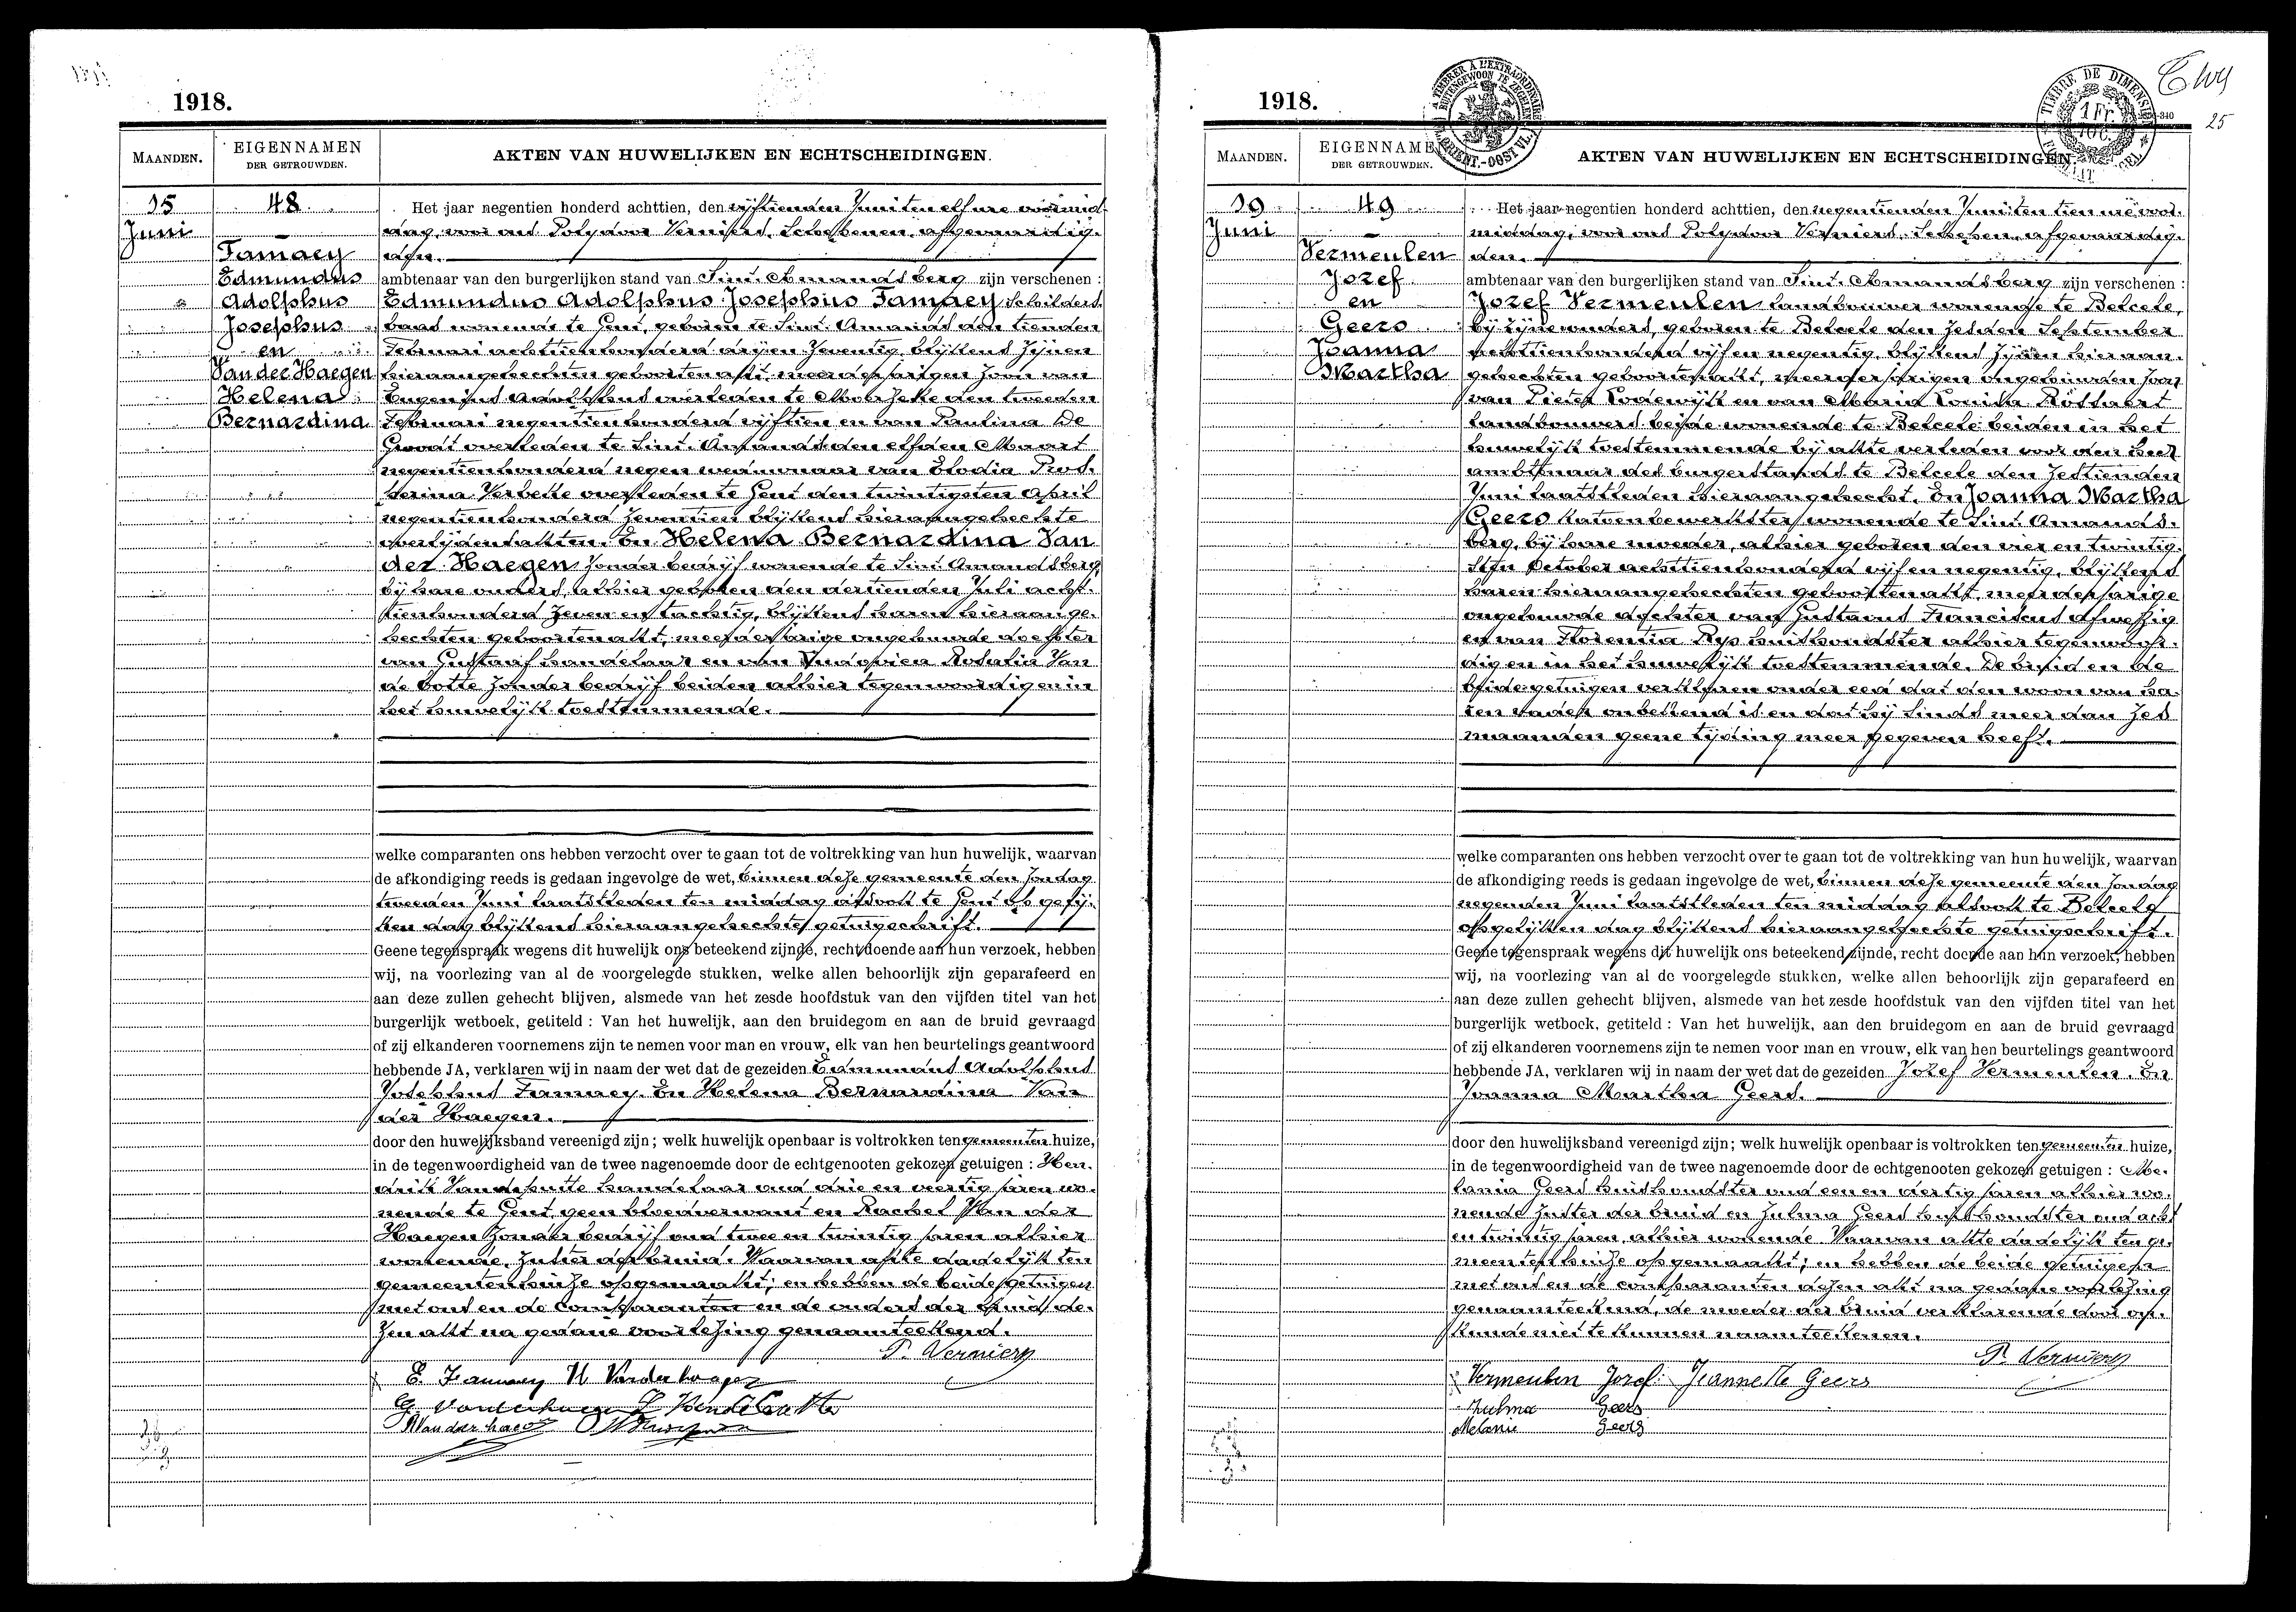 1918.
MAANDEN.
EIGENNAMEN
DER GETROUWDEN.
AKTEN VAN HUWELIJKEN EN ECHTSCHEIDINGEN.
15
Juni
48
Tamaey
Edmundus
Adolphus
Josephus
en
Van der Haegen
Helena
Bernardina
Het jaar negentien honderd achttien, den vijftienden Juni ten elf ure voormid-
dag, voor ons Polydoor Verniers, Schepenen, afgevaardig-
den.
ambtenaar van den burgerlijken stand van Sint Amandsberg zijn verschenen :
Edmundus Adolphus Josephus Tamaey, schilders
baas wonende te Gent, geboren te Sint Amands den tienden
Februari achttienhonderd drij en zeventig, blijkens zijnen
hieraangehechten geboortenakt, meerderjarigen zoon van
Eugenius Adolphus overleden te Moerzeke den tweeden
Februari negentienhonderd vijftien en van Paulina De
Groodt overleden te Sint Amands den elfden Maart
negentienhonderd negen weduwnaar van Elodia
Verbeke overleden te Gent den twintigsten April
negentienhonderd zeventien blijkens hieraangehechte
overlijdensakten. En Helena Bernardina Van
der Haegen zonder bedrijf wonende te Sint Amandsberg,
bij hare ouders, alhier geboren den dertienden Juli acht-
tienhonderd zeven en tachtig, blijkens haren hieraange-
hechten geboortenakt, meerderjarige ongehuwde dochter
van Gustaaf handelaar en van Ludovica Rosalia Van
de Potte zonder bedrijf beiden alhier tegenwoordig en in
het huwelijk toestemmende.
welke comparanten ons hebben verzocht over te gaan tot de voltrekking van hun huwelijk, waarvan
de afkondiging reeds is gedaan ingevolge de wet, binnen deze gemeente den Zondag
tweeden Juni laatstleden ten middag alsook te Gent op gelij-
ken dag blijkens hieraangehechte getuigschrift.
Geene tegenspraak wegens dit huwelijk ons beteekend zijnde, recht doende aan hun verzoek, hebben
wij, na voorlezing van al de voorgelegde stukken, welke allen behoorlijk zijn geparafeerd en
aan deze zullen gehecht blijven, alsmede van het zesde hoofdstuk van den vijfden titel van het
burgerlijk wetboek, getiteld : Van het huwelijk, aan den bruidegom en aan de bruid gevraagd
of zij elkanderen voornemens zijn te nemen voor man en vrouw, elk van hen beurtelings geantwoord
hebbende JA, verklaren wij in naam der wet dat de gezeiden Edmundus Adolphus
Josephus Tamaey. En Helena Bernardina Van
der Haegen.
door den huwelijksband vereenigd zijn; welk huwelijk openbaar is voltrokken ten gemeenten huize,
in de tegenwoordigheid van de twee nagenoemde door de echtgenooten gekozen getuigen : Hen-
drik Vandeputte handelaar oud drie en veertig jaren wo-
nende te Gent geen bloedverwant en Rachel Van der
Haegen zonder bedrijf oud twee en twintig jaren alhier
wonende, zuster der bruid. Waarvan akte dadelijk ten
gemeentenhuize opgemaakt; en hebben de beide getuigen
met ons en de comparanten en de ouders der bruid de-
zen akt na gedane voorlezing genaamteekend.
P. Verniers
E. Tamaey H Vanderhaegen
1918.
25
TIMBRE DE DIMENSION
1 Fr.
MAANDEN.
EIGENNAMEN
DER GETROUWDEN.
AKTEN VAN HUWELIJKEN EN ECHTSCHEIDINGEN.
19
Juni
49
Vermeulen
Jozef
en
Geers
Joanna
Martha
Het jaar negentien honderd achttien, den negentienden Juni ten tien ure voor-
middag, voor ons Polydoor Verniers, Schepen, afgevaardig-
den.
ambtenaar van den burgerlijken stand van Sint Amandsberg zijn verschenen :
Jozef Vermeulen, landbouwer wonende te Belcele,
bij zijne ouders, geboren te Belcele den zesden September
achttienhonderd vijf en negentig, blijkens zijnen hieraan-
gehechten geboortenakt, meerderjarigen ongehuwden zoon
van Pieter Lodewijk en van Maria Louisa Rottaert
landbouwers beide wonende te Belcele beiden in het
huwelijk toestemmende bij akte verleden voor den heer
ambtenaar des burgerstands te Belcele den zestienden
Juni laatstleden hieraangehecht. En Joanna Martha
Geers katoenbewerkster wonende te Sint Amands-
berg, bij hare moeder, alhier geboren den vier en twintig-
sten October achttienhonderd vijf en negentig, blijkens
haren hieraangehechten geboortenakt, meerderjarige
ongehuwde dochter van Gustavus Franciscus afwezig
en van Florentia Rys huishoudster alhier tegenwoor-
dig en in het huwelijk toestemmende. De bruid en de
beide getuigen verklaren onder eed dat den woon van ha-
ren vader onbekend is en dat hij sinds meer dan zes
maanden geene tijding meer gegeven heeft.
welke comparanten ons hebben verzocht over te gaan tot de voltrekking van hun huwelijk, waarvan
de afkondiging reeds is gedaan ingevolge de wet, binnen deze gemeente den Zondag
negenden Juni laatstleden ten middag alsook te Belcele
op gelijken dag blijkens hieraangehechte getuigschrift.
Geene tegenspraak wegens dit huwelijk ons beteekend zijnde, recht doende aan hun verzoek, hebben
wij, na voorlezing van al de voorgelegde stukken, welke allen behoorlijk zijn geparafeerd en
aan deze zullen gehecht blijven, alsmede van het zesde hoofdstuk van den vijfden titel van het
burgerlijk wetboek, getiteld : Van het huwelijk, aan den bruidegom en aan de bruid gevraagd
of zij elkanderen voornemens zijn te nemen voor man en vrouw, elk van hen beurtelings geantwoord
hebbende JA, verklaren wij in naam der wet dat de gezeiden Jozef Vermeulen. En
Joanna Martha Geers.
door den huwelijksband vereenigd zijn; welk huwelijk openbaar is voltrokken ten gemeenten huize,
in de tegenwoordigheid van de twee nagenoemde door de echtgenooten gekozen getuigen : Me-
lania Geers huishoudster oud een en dertig jaren alhier wo-
nende zuster der bruid en Zulma Geers huishoudster oud acht
en twintig jaren, alhier wonende. Waarvan akte dadelijk ten ge-
meentenhuize opgemaakt; en hebben de beide getuigen
met ons en de comparanten dezen akt na gedane voorlezing
genaamteekend, de moeder der bruid verklarende door on-
kunde niet te kunnen naamteekenen.
P. Verniers
Vermeulen Jozef Jeannette Geers
Zulma Geers
Melanie Geers